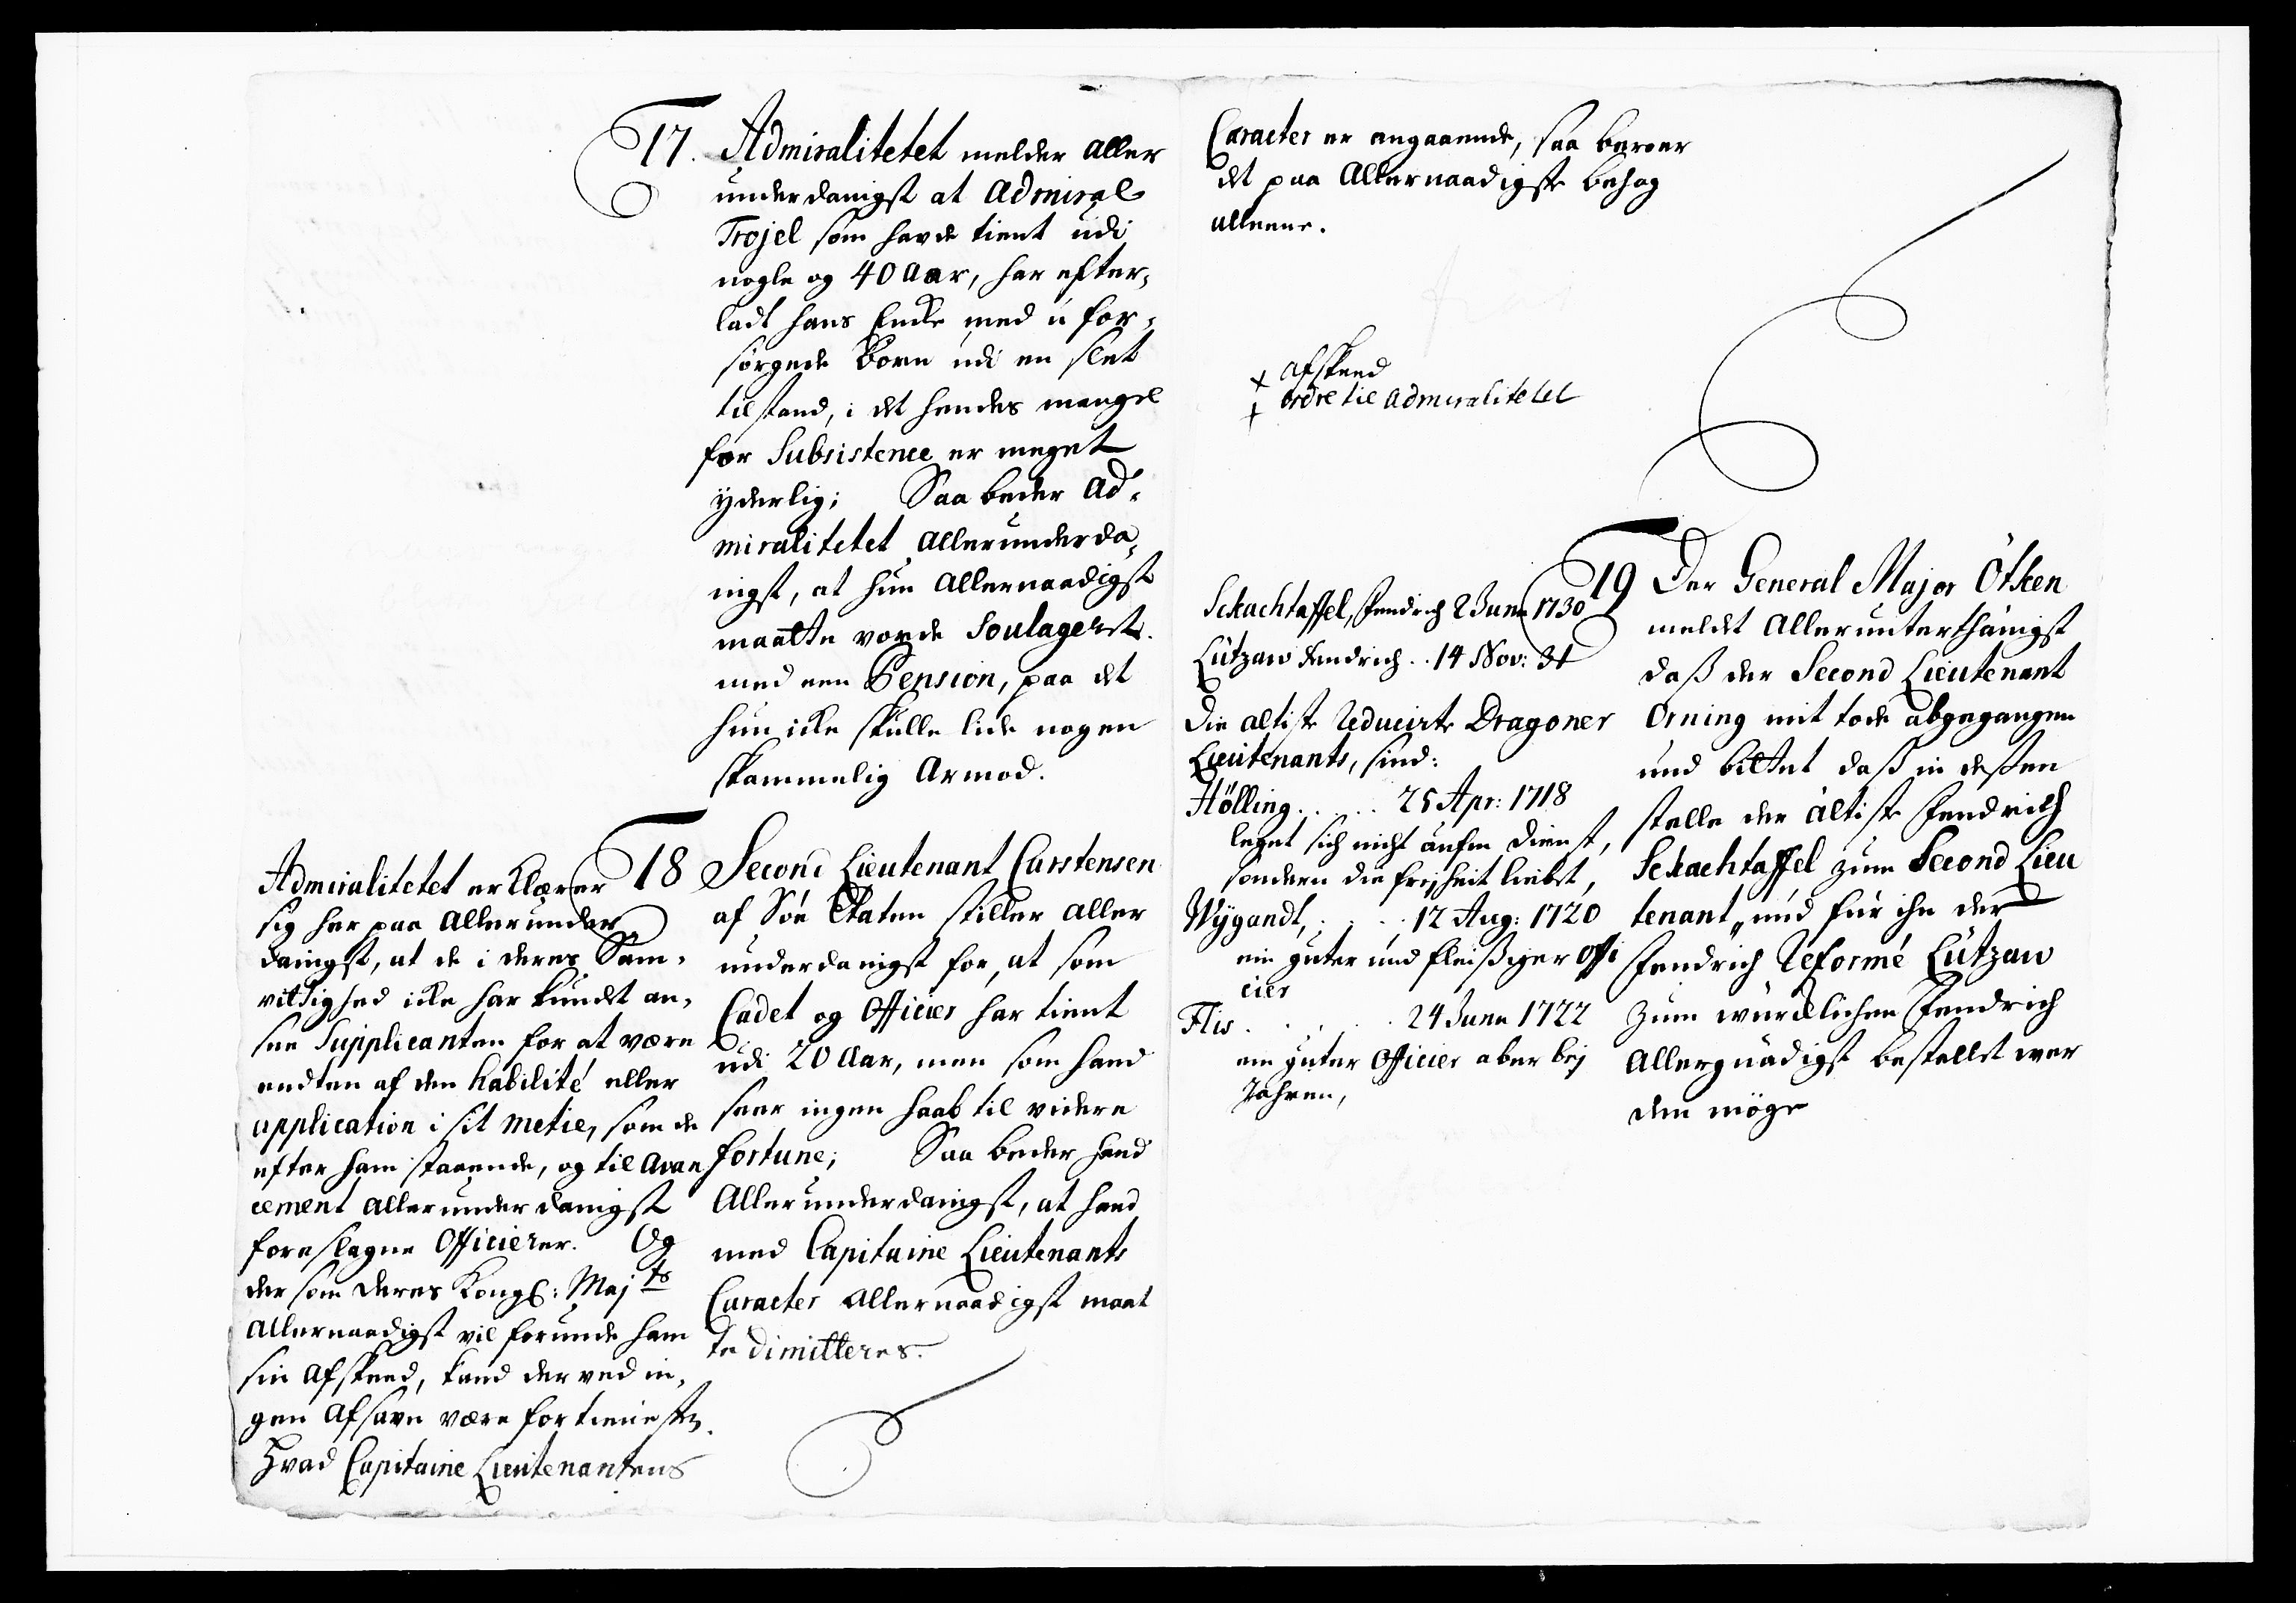 17. Admiralitetet melder aller
underdanigst at Admiral
Trojel som havde tient udi
nogle og 40 Aar, har efter,
ladt hans Encke med u for,
sørgede Børn udi en slet
tilstand, i det hendes mangel
for Subsistence er meget
ÿderlig; Saa beder Ad,
miralitetet Allerunderda,
nigst, at hun Allernaadigst
maatte vorde Soulageret
med een Pension, paa det
hun icke skulle lide nogen
skammelig Armod.
18 Second Lieutenant Carstensen
af Søe Etaten stiller aller
underdanigst for, at som
Cadet og Officier har tient
udi 20 Aar, men som hand
seer ingen haab til videre
fortune; Saa beder hand
Allerunderdanigst, at hand
med Capitaine Lieutenants
Caracter Allernaadigst maat
te dimitteres.
Admiralitetet erklærer
sig her paa Allerunder
danigst, at de i deres Sam,
vittighed icke har kundet an,
see Supplicanten for at være
endten af den habilité eller
application i sit metie, som de
efter ham staaende, og til Avan
cement allerunderdanigst
foreslagne Officierer. Og
der som Deres Kongl: Majts
Allernaadigst vil forunde ham
sin Afskeed, kand der ved in,
gen Afsavn være for tienesten.
Hvad Capitaine Lieutenantens
Caracter er angaaende, saa beroer
det paa Allernaadigste behag
alleene.
+ Afskeed
+ Ordre til Admiralitetet
19 Der General Major Ötken
meldet Allerunterthänigst
daß der Second Lieutenant
Orning mit tode abgegangen
und bittet daß in deßen
stelle der ältiste Fendrich
Schachtaffel zum Second Lieu
tenant, und für ihn der
Fendrich Reformé Lützaw
zum würcklichen Fendrich
Allergnädigst bestellet wer
den möge
Schachtaffel, Fendrich 2 Junn 1730
Lützaw Fendrich .. 14 Nov: 31
Die altiste Reducirte Dragoner
Lieutenants, sind:
Hölling .... 25 Apr: 1718
leget sich nicht aufm Dienst,
sondern die freÿheit liebet,
Wÿgandt, .... 12 Aug: 1720
ein guter und fleißiger Offi
cier
Flis ..... 24 Junn 1722
ein guter Officier aber beÿ
Jahren,